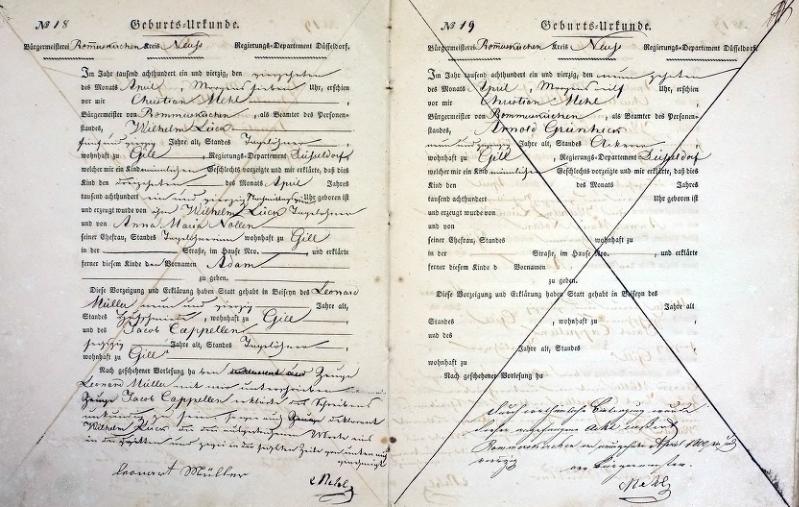 No 18
Geburts-Urkunde.
Bürgermeisterei Rommerskirchen Kreis Neuss Regierungs-Departement Düsseldorf.
Im Jahr tausend achthundert ein und vierzig, den vierzehnten
des Monats April, Morgens sieben Uhr, erschien
vor mir Christian Mehl,
Bürgermeister von Rommerskirchen, als Beamter des Personen-
standes, Wilhelm Lück
fünf und vierzig Jahre alt, Standes Tagelöhner
wohnhaft zu Gill, Regierungs-Departement Düsseldorf
welcher mir ein Kind männlichen Geschlechts vorzeigte und mir erklärte, daß dies
Kind den dreizehnten des Monats April Jahres
tausend achthundert ein und vierzig Nachmittags Uhr geboren ist
und erzeugt wurde von ihm Wilhelm Lück Tagelöhner
und von Anna Maria Nollen
seiner Ehefrau, Standes Tagelöhnerin wohnhaft zu Gill
in der Straße, im Hause Nro. und erklärte
ferner diesem Kinde den Vornamen Adam
zu geben.
Diese Vorzeigung und Erklärung haben Statt gehabt in Beiseyn des Leonard
Müller neun und vierzig Jahre alt,
Standes, wohnhaft zu Gill
und des Jacob Cappellen
sechzig Jahre alt, Standes Tagelöhner
wohnhaft zu Gill
Nach geschehener Vorlesung haben Zeuge
Leonard Müller mit mir unterschrieben
Zeuge Jacob Cappellen erklärte des Schreibens
unkundig zu sein, Deklarant
Wilhelm Lück die Worte aus
in der und in der sechsten Zeile
genehmigt
Leonart Müller
CMehl
No 19
Geburts-Urkunde.
Bürgermeisterei Rommerskirchen Kreis Neuss Regierungs-Departement Düsseldorf.
Im Jahr tausend achthundert ein und vierzig, den neunzehnten
des Monats April, Morgens elf Uhr, erschien
vor mir Christian Mehl,
Bürgermeister von Rommerskirchen, als Beamter des Personen-
standes, Arnold Grünheck
neun und vierzig Jahre alt, Standes Ackerer
wohnhaft zu Gill, Regierungs-Departement Düsseldorf
welcher mir ein Kind männlichen Geschlechts vorzeigte und mir erklärte, daß dies
Kind den des Monats Jahres
tausend achthundert Uhr geboren ist
und erzeugt wurde von
und von
seiner Ehefrau, Standes wohnhaft zu
in der Straße, im Hause Nro. und erklärte
ferner diesem Kinde d Vornamen
zu geben.
Diese Vorzeigung und Erklärung haben Statt gehabt in Beiseyn des
Jahre alt,
Standes, wohnhaft zu
und des
Jahre alt, Standes
wohnhaft zu
Nach geschehener Vorlesung ha
Akt
Rommerskirchen April
vierzig
Bürgermeister.
CMehl